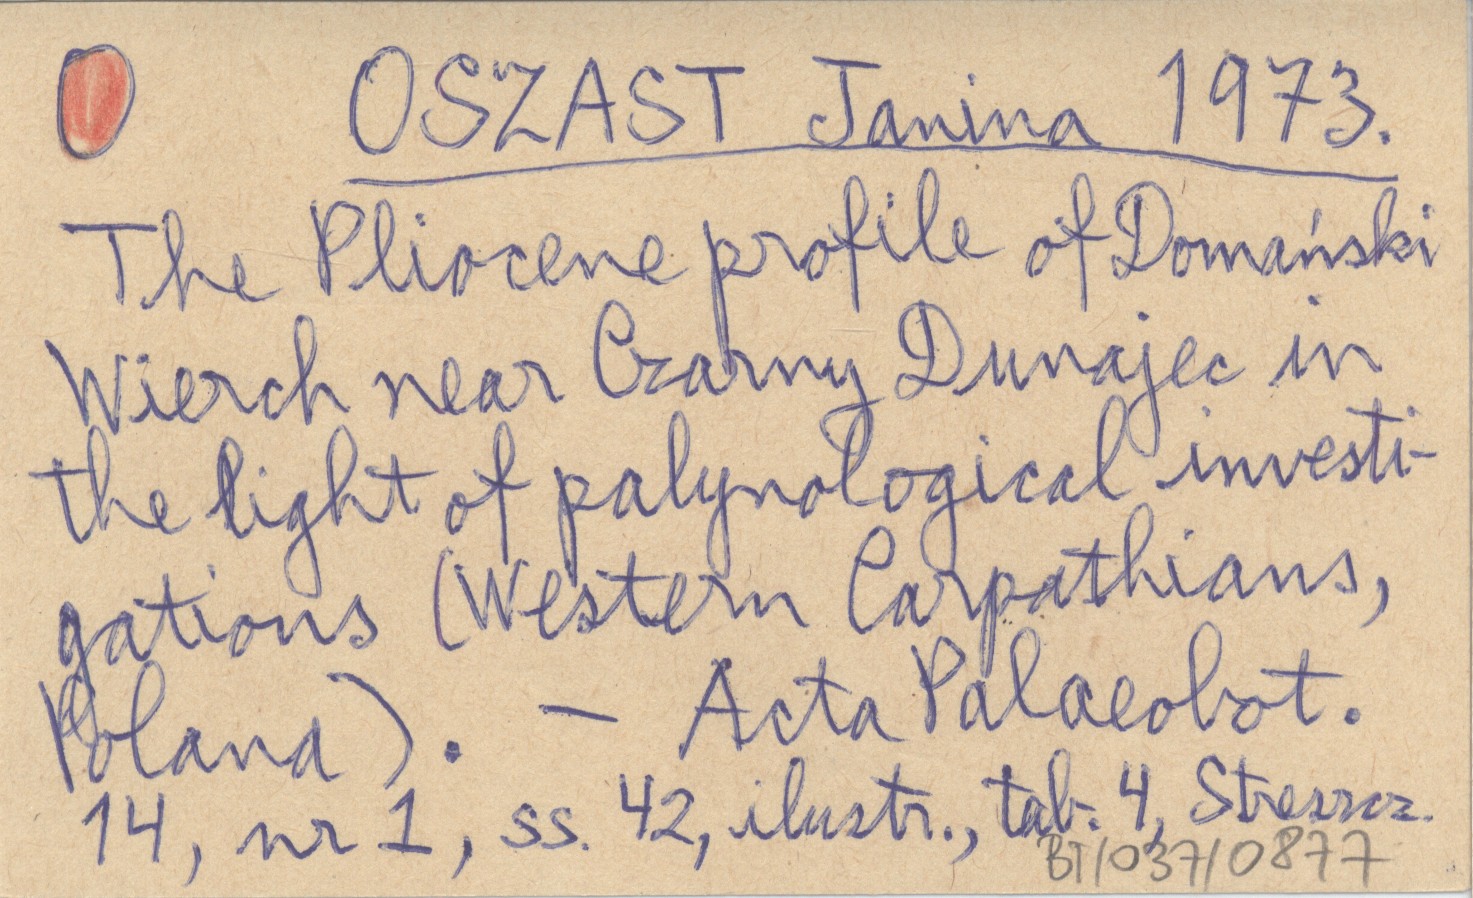 OSZAST Janina 1973.
The Pliocene profile of Domański
Wierch near Czarny Dunajec in
the light of palynological investi-
gations (Western Carpathians,
Poland). - Acta Palaeobot.
14, nr 1, ss. 42, ilustr., tab. 4, Streszcz.
BT/037/0877